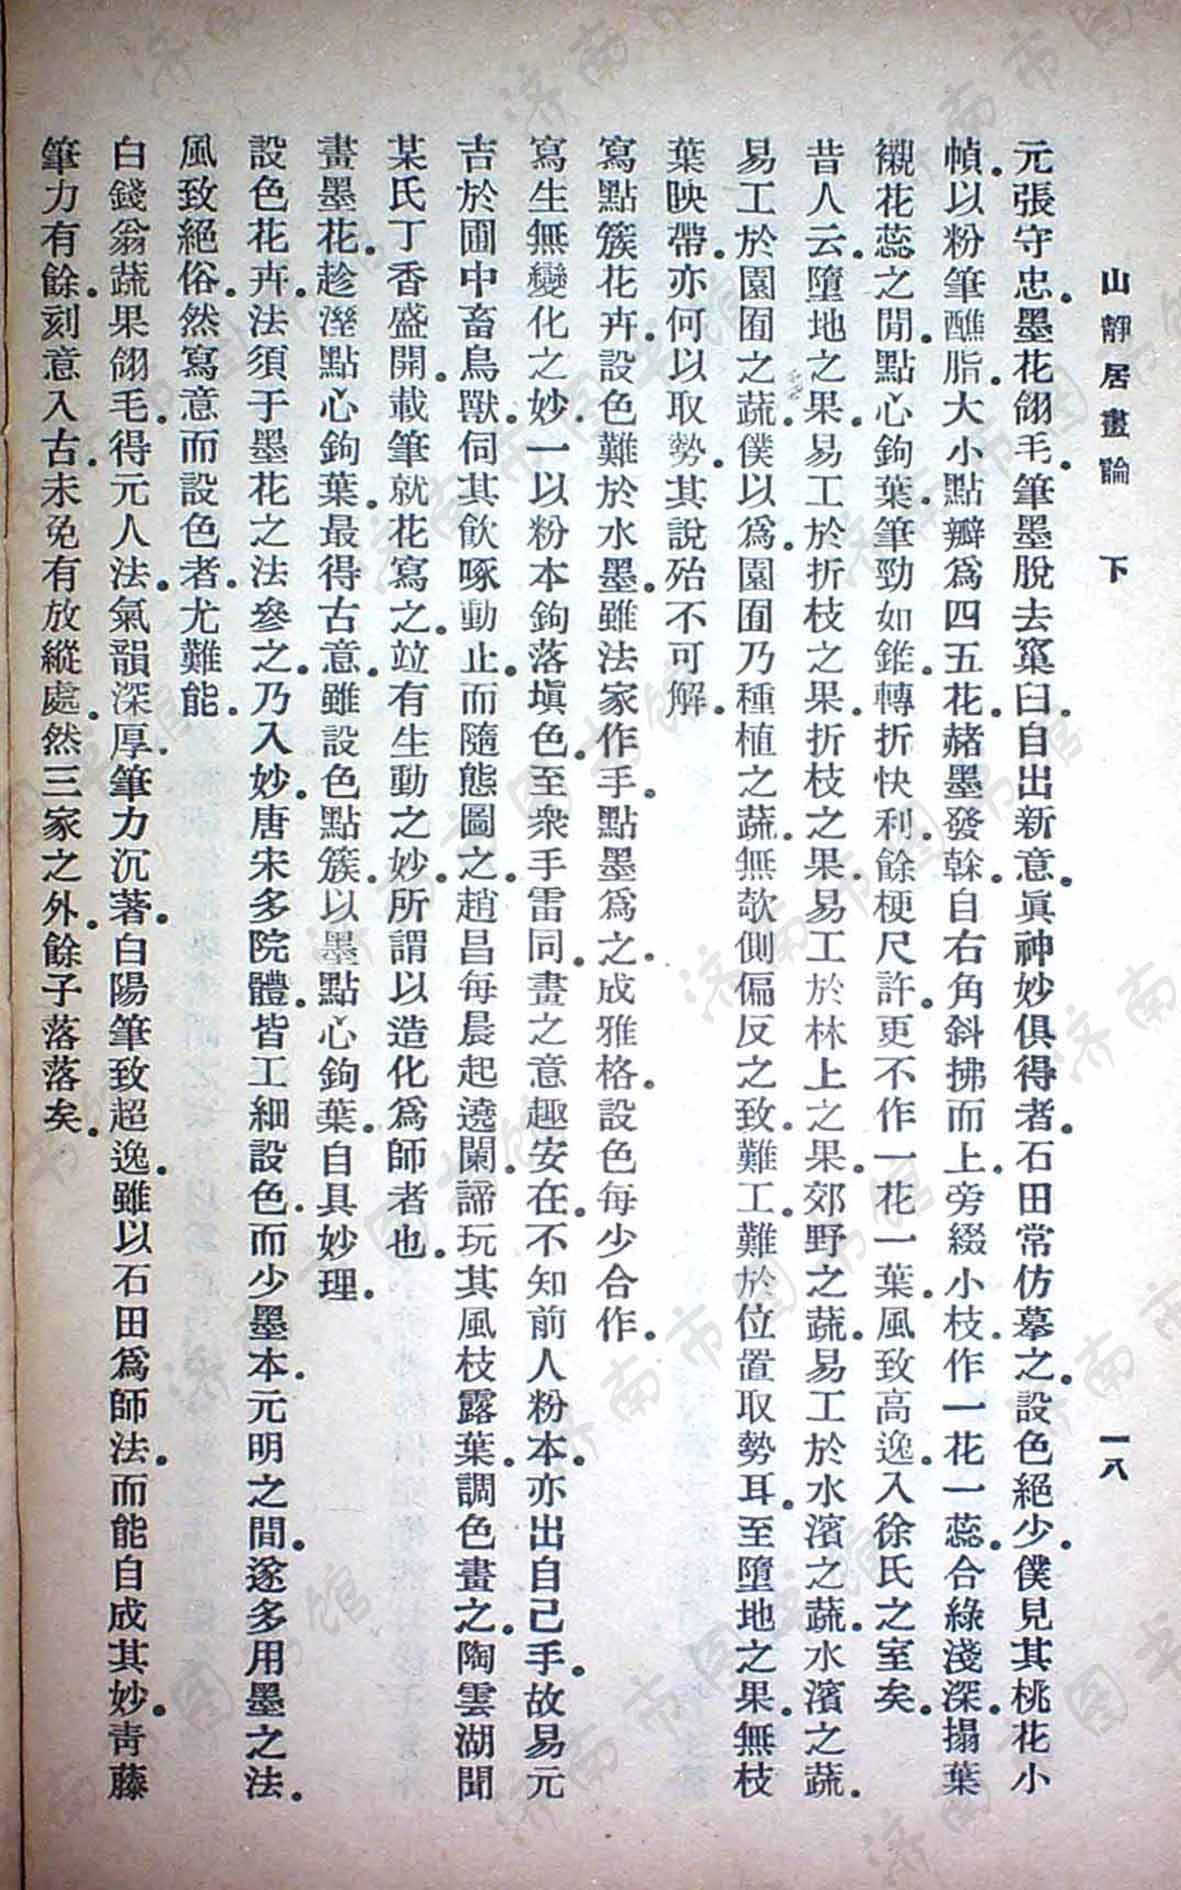 山靜居畫論 下 一八
元張守忠。墨花翎毛。筆墨脫去窠臼。自出新意。眞神妙俱得者。石田常仿摹之。設色絕少。僕見其桃花小
幀。以粉筆醮脂。大小點瓣爲四五花。赭墨發榦。自右角斜拂而上。旁綴小枝。作一花一蕊。合綠淺深。搨葉
襯花蕊之閒。點心鉤葉。筆勁如錐。轉折快利。餘梗尺許。更不作一花一葉。風致高逸。入徐氏之室矣。
昔人云。墮地之果。易工於折枝之果。折枝之果。易工於林上之果。郊野之蔬。易工於水濱之蔬。水濱之蔬。
易工於園囿之蔬。僕以爲。園囿乃種植之蔬。無欹側偏反之致。難工。難於位置取勢耳。至墮地之果。無枝
葉映帶。亦何以取勢。其說殆不可解。
寫點簇花卉。設色難於水墨。雖法家作手。點墨爲之。成雅格。設色每少合作。
寫生無變化之妙。一以粉本鉤落塡色。至衆手雷同。畫之意趣安在。不知前人粉本。亦出自己手。故易元
吉於圃中畜鳥獸。伺其飮啄動止。而隨態圖之。趙昌每晨起遶闌。諦玩其風枝露葉。調色畫之。陶雲湖聞
某氏丁香盛開。載筆就花寫之。竝有生動之妙。所謂以造化爲師者也。
畫墨花。趁溼點心鉤葉。最得古意。雖設色點簇。以墨點心鉤葉。自具妙理。
設色花卉。法須于墨花之法參之。乃入妙。唐宋多院體。皆工細設色。而少墨本。元明之間。遂多用墨之法。
風致絕俗。然寫意而設色者。尤難能。
白錢翁蔬果翎毛。得元人法。氣韻深厚。筆力沉著。白陽筆致超逸。雖以石田爲師法。而能自成其妙。靑藤
筆力有餘。刻意入古。未免有放縱處。然三家之外。餘子落落矣。